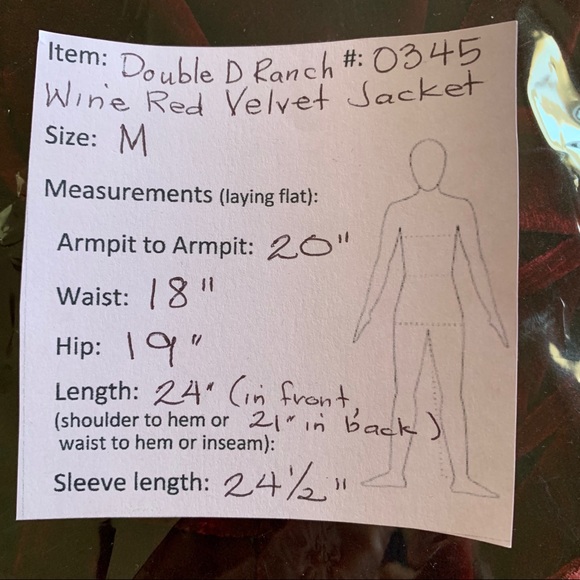 Item: Double D Ranch #: 0345
Wine Red Velvet Jacket
Size: M
Measurements (laying flat):
Armpit to Armpit: 20"
Waist: 18"
Hip: 19"
Length: 24" (in front,
(shoulder to hem or 21" in back)
waist to hem or inseam):
Sleeve length: 24 1/2"